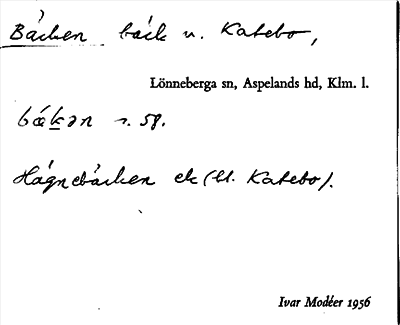 Bäcken bäck n. Katebo,
Lönneberga sn, Aspelands hd, Klm. l.
bǽkən
Hägnebäcken ek (bl. Katebo).
Ivar Modéer 1956